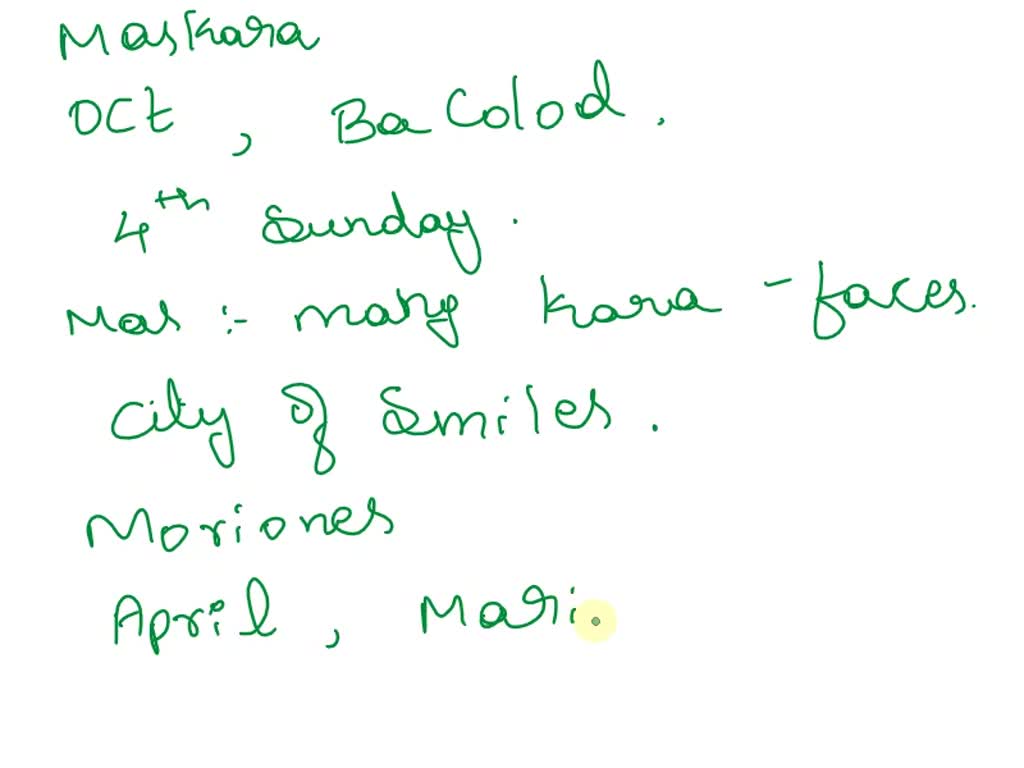 Maskara
OCt , Bacolod .
4th Sunday .
Mas :- many kara - faces.
City of Smiles .
Moriones
April , Mari